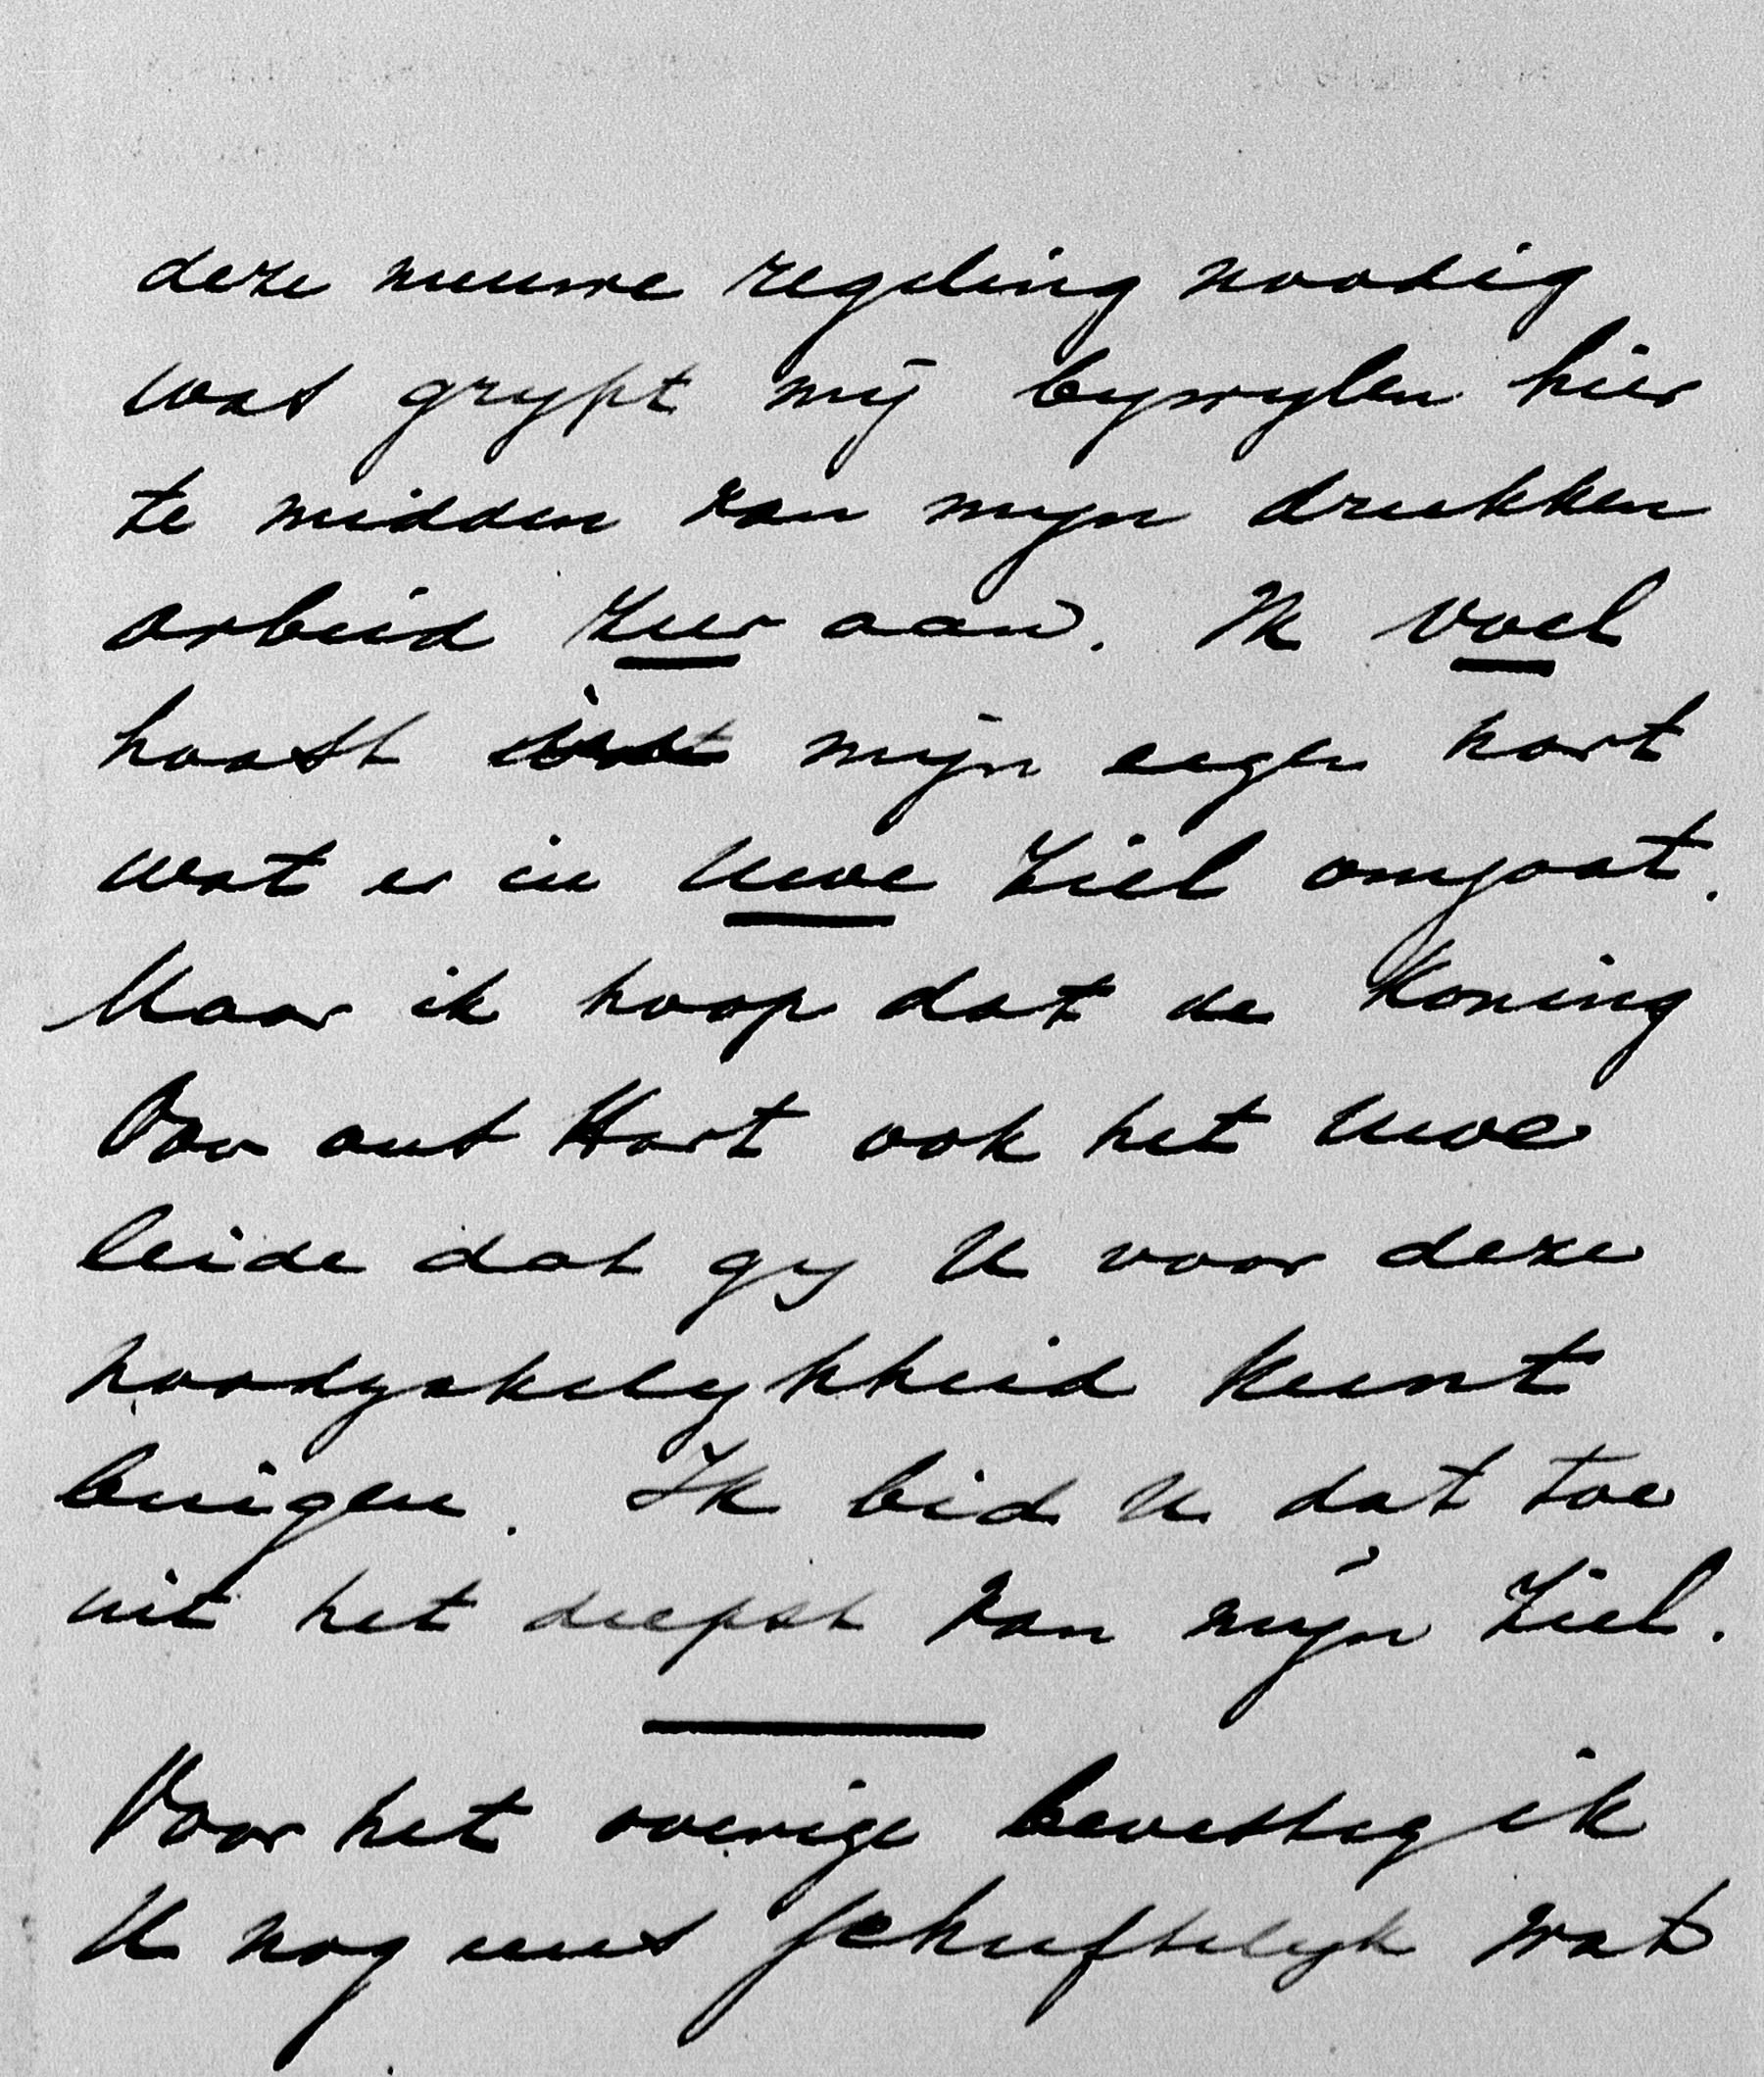 deze nieuwe regeling noodig
was grypt mij bywylen hier
te midden van myn drukken
arbeid zeer aan. Ik voel
haast mijn eigen hart
wat er in Uwe Ziel omgaat.
Maar ik hoop dat de Koning
van ons Hart ook het Uwe
leide dat gy U voor deze
noodzakelykheid kunt
buigen. Ik bid U dat toe
uit het diepst van mijn Ziel.
Voor het overige bevestig ik
U nog eens schriftelyk wat